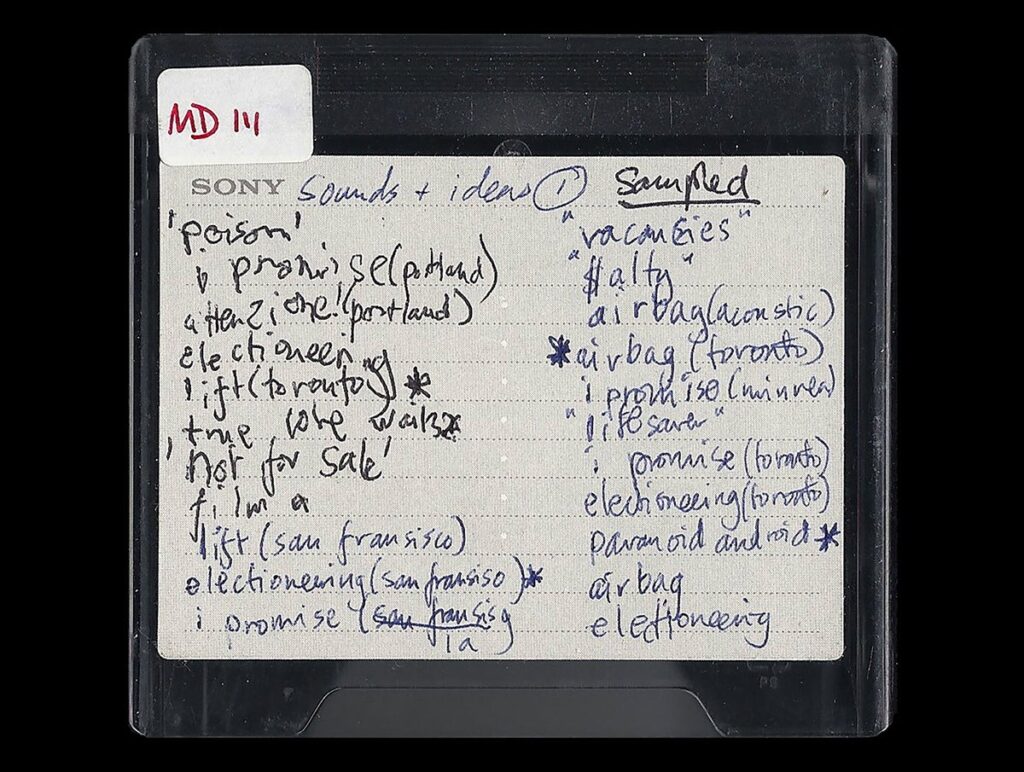 MD 111
SONY sounds + ideas ① sampled
'poison'
i promise (portland)
attenzione! (portland)
electioneering
lift (toronto) *
true love waits *
'not for sale'
film a
lift (san fransisco)
electioneering (san fransiso) *
i promise (san fransis
la)
"vacancies"
"$alty"
airbag (acoustic)
* airbag (toronto)
i promise
"lifesaver"
i promise (toronto)
electioneering (toronto)
paranoid android *
airbag
electioneering